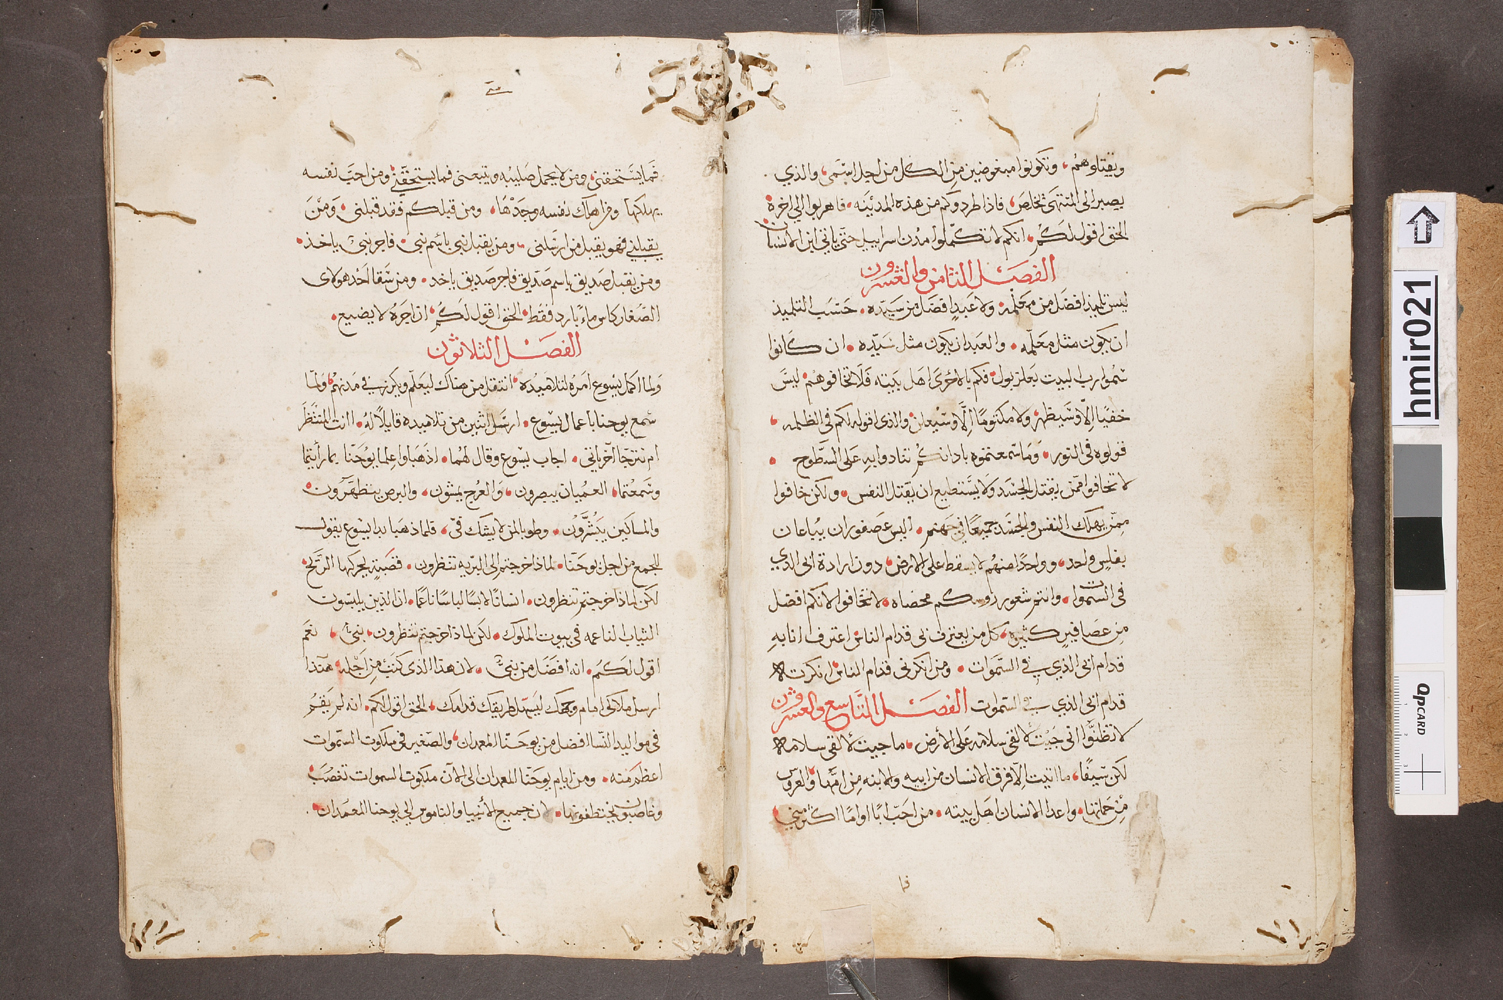 ويقتلوهم، وتكونوا مبغوضين من الكل من اجل اسمى، والذي
يصبر الى المنتهى يخلص، فاذا طردوكم من هذه المدينه، فاهربوا الى اخرة
الحق اقول لكم، انكم لا تكملوا مدن اسراييل حتى ياتي ابن الانسان
الفصل الثامن والعشرون
ليس تلميذ افضل من معلمه، ولا عبد افضل من سيده، حسب التلميذ
ان يكون مثل معلمه، والعبد ان يكون مثل سيده، ان كانوا
سموا رب البيت بعلزبول، فكم بالاحرى اهل بيته فلا تخافوهم، ليس
خفيا الا وسيظهر، ولا مكتوما الا وسيعلن، والذى اقوله لكم في الظلمه،
قولوه في النور، وما سمعتموه باذانكم نادوا به على السطوح،
لا تخافوا ممن يقتل الجسد ولا يستطيع ان يقتل النفس، ولكن خافوا
ممن يهلك النفس والجسد جميعا في جهنم، اليس عصفوران يباعان
بفلس واحد، وواحدا منهم لا يسقط على الارض، دون ارادة ابى الذي
في السموات، وانتم شعور روسكم محصاه، لا تخافوا لانكم افضل
من عصافير كثيره، كل من يعترف بى قدام الناس اعترف انا به
قدام ابى الذي في السموات، ومن انكرني قدام الناس انكرته
قدام ابى الذي في السموات الفصل التاسع والعشرون
لا تظنوا انى جيت لالقى سلامه على الارض، ما جيت لالقى سلامه
لكن سيفا، ما اتيت الا لافرق الانسان من ابيه والابنه من امها، والعروس
من حماتها، واعدا الانسان اهل بيته، من احب ابا او اما اكثر مني
فما يستحقنى، ومن لا يحمل صليبه ويتبعنى فما يستحقني، ومن احب نفسه
يهلكها ومن اهلك نفسه وجدها، ومن قبلكم فقد قبلنى، ومن
يقبلني فهو يقبل من ارسلنى، ومن يقبل نبي باسم نبى، فاجر نبي ياخذ،
ومن يقبل صديق باسم صديق فاجر صديق ياخد، ومن سقا احد هولاى
الصغار كاس ماء بارد فقط، الحق اقول لكم، ان اجره لا يضيع،
الفصل الثلاثون
ولما اكمل يسوع امره لتلاميده، انتقل من هناك ليعلم ويكرز في مدنهم، ولما
سمع يوحنا باعمال يسوع، ارسل اثنين من تلاميده قايلا له، اانت المنتظر
ام نترجا اخر ياتي، اجاب يسوع وقال لهما، ادهبا واعلما يوحنا بما رايتما
وسمعتما، العميان يبصرون، والعرج يمشون، والبرص يتطهرون
والمساكين يبشرون، وطوبا لمن لا يشك في، فلما ذهبا بدا يسوع يقول
للجمع من اجل يوحنا، لماذا خرجتم الى البريه تنظرون، قصبة يحركها الريح
لكن لماذا خرجتم تنظرون، انسانا لابسا لباسا ناعما، ان الذين يلبسون
الثياب الناعمه في بيوت الملوك، لكن لماذا خرجتم تنظرون، نبي، نعم
اقول لكم، انه افضل من نبي، لان هذا الذى كتب من اجله، هنذا
ارسل ملاكى امام وجهك ليسهل طريقك قدامك، الحق اقول لكم، انه لم يقم
في مواليد النسا افضل من يوحنا المعمدان، والصغير في ملكوت السموات
اعظم منه، ومن ايام يوحنا المعمدان الى الان ملكوت السموات تغصب
وغاصبون يختطفونها، لان جميع الانبيا والناموس الى يوحنا المعمدان،
hmir021
QP CARD